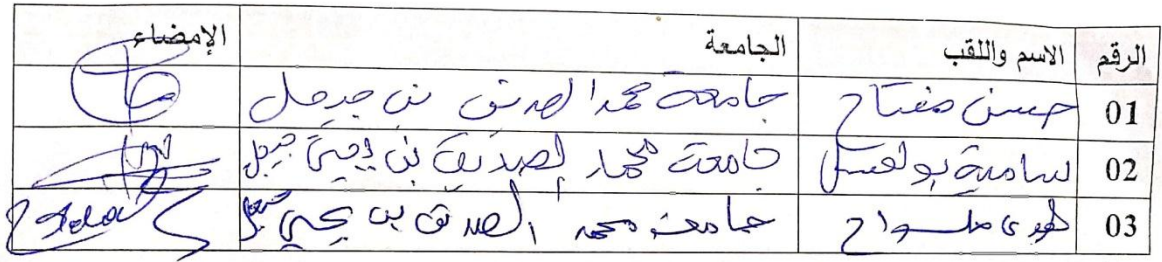 الرقم الاسم واللقب الجامعة الإمضاء
01 حسن مفتاح جامعة محمد الصديق بن جيجل
02 سامية جامعة محمد الصديق بن يحيى جيجل
03 جامعة محمد الصديق بن يحيى جيجل